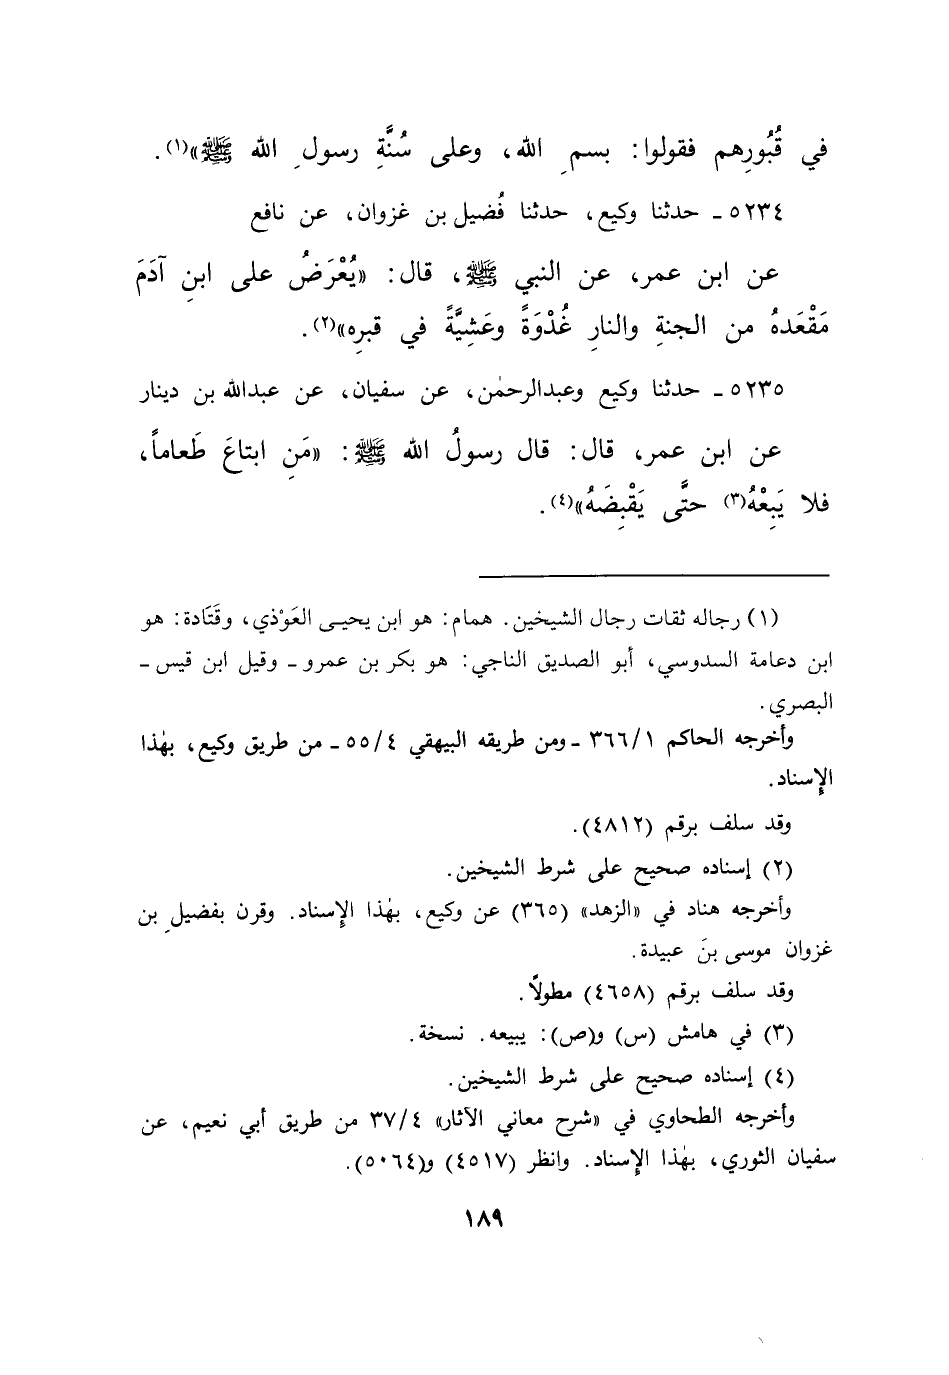 في قُبُورِهم فقولوا: بسمِ الله، وعلى سُنَّةِ رسولِ الله ﷺ»(١).
٥٢٣٤ ـ حدثنا وكيع، حدثنا فُضيل بن غزوان، عن نافع
عن ابن عمر، عن النبي ﷺ، قال: «يُعْرَضُ على ابنِ آدَمَ
مَقْعَدهُ من الجنةِ والنارِ غُدْوَةً وعَشِيَّةً في قبرِه»(٢).
٥٢٣٥ ـ حدثنا وكيع وعبدالرحمٰن، عن سفيان، عن عبدالله بن دينار
عن ابن عمر، قال: قال رسولُ الله ﷺ: «مَنِ ابتاعَ طَعاماً،
فلا يَبِعْهُ(٣) حتَّى يَقْبِضَهُ»(٤).
(١) رجاله ثقات رجال الشيخين. همام: هو ابن يحيـى العَوْذي، وقَتَادة: هو
ابن دعامة السدوسي، أبو الصديق الناجي: هو بكر بن عمرو ـ وقيل ابن قيس ـ
البصري.
وأخرجه الحاكم ٣٦٦/١ ـ ومن طريقه البيهقي ٥٥/٤ ـ من طريق وكيع، بهٰذا
الإِسناد.
وقد سلف برقم (٤٨١٢).
(٢) إسناده صحيح على شرط الشيخين.
وأخرجه هناد في «الزهد» (٣٦٥) عن وكيع، بهٰذا الإِسناد. وقرن بفضيلِ بن
غزوان موسى بنَ عبيدة.
وقد سلف برقم (٤٦٥٨) مطولاً.
(٣) في هامش (س) و(ص): يبيعه. نسخة.
(٤) إسناده صحيح على شرط الشيخين.
وأخرجه الطحاوي في «شرح معاني الآثار» ٣٧/٤ من طريق أبي نعيم، عن
سفيان الثوري، بهٰذا الإِسناد. وانظر (٤٥١٧) و(٥٠٦٤).
١٨٩